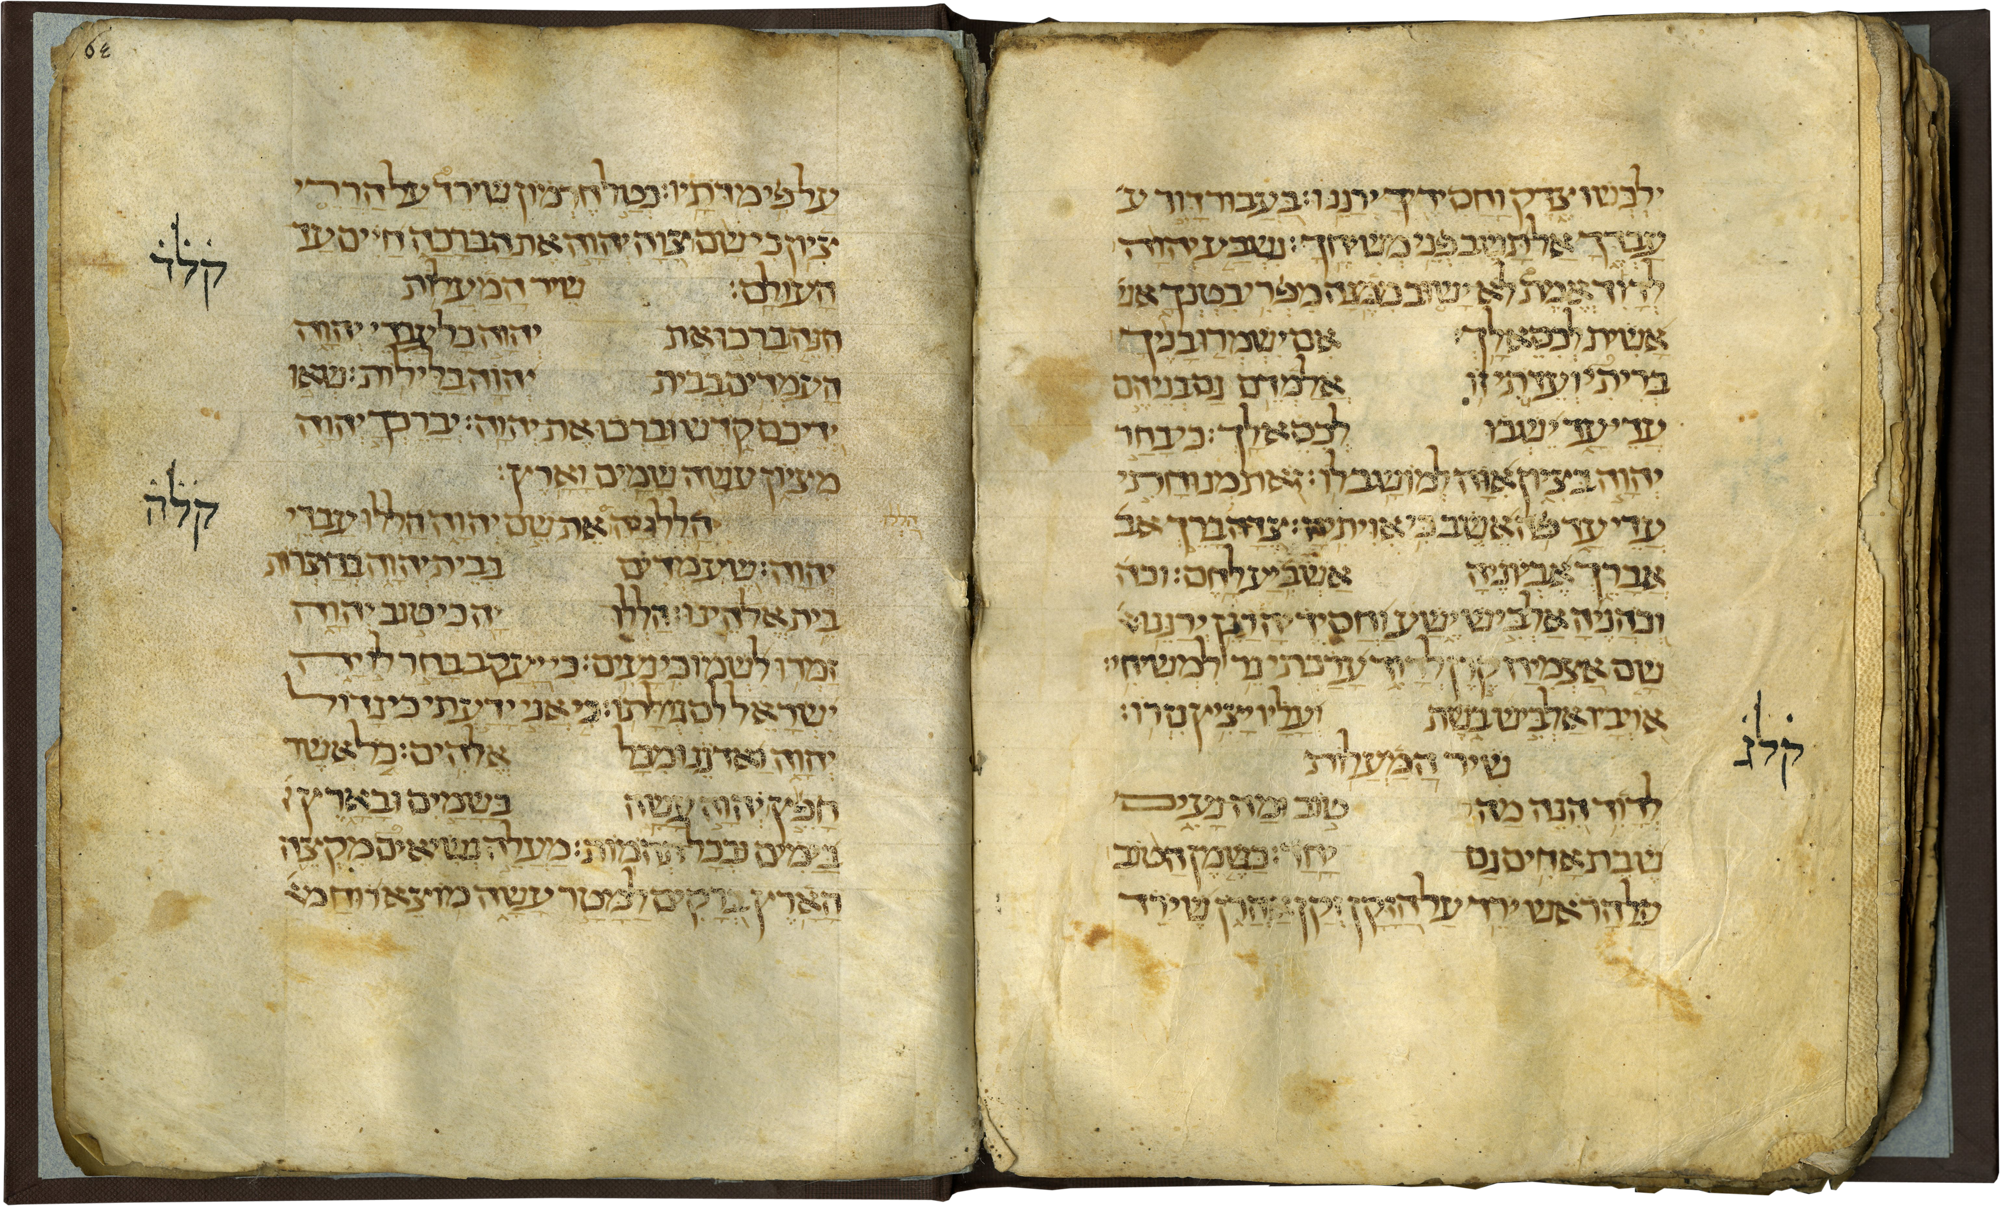 ילבשו צדק וחסידיך ירננו: בעבור דוד ע
עבדך אל תשב פני משיחך: נשבע יהוה
לדוד אמת לא ישוב ממנה מפרי בטנך אש
אשית לכסא לך: אם ישמרו בניך
בריתי ועדתי זו אלמדם גם בניהם
עדי עד ישבו לכסא לך: כי בחר
יהוה בציון אוה למושב לו: זאת מנוחתי
עדי עד פה אשב כי אויתיה: צידה ברך אב
אברך אביוניה אשביע לחם: וכה
וכהניה אלביש ישע וחסידיה רנן ירננו:
שם אצמיח קרן לדוד ערכתי נר למשיחי:
אויביו אלביש בשת ועליו יציץ נזרו:
קלג
שיר המעלות
לדוד הנה מה טוב ומה נעים
שבת אחים גם יחד: כשמן הטוב
על הראש ירד על הזקן זקן אהרן שירד
64
על פי מדתיו: כטל חרמון שירד על הררי
ציון כי שם צוה יהוה את הברכה חיים עד
העולם: שיר המעלות
קלד
הנה ברכו את יהוה כל עבדי יהוה
העמדים בבית יהוה בלילות: שאו
ידיכם קדש וברכו את יהוה: יברכך יהוה
מציון עשה שמים וארץ:
קלה
הללו יה את שם יהוה הללו עבדי
יהוה: שעמדים בבית יהוה בחצרות
בית אלהינו: הללו יה כי טוב יהוה
זמרו לשמו כי נעים: כי יעקב בחר לו יה
ישראל לסגלתו: כי אני ידעתי כי גדול
יהוה ואדנינו מכל אלהים: כל אשר
חפץ יהוה עשה בשמים ובארץ
בימים וכל תהמות: מעלה נשיאים מקצה
הארץ ברקים למטר עשה מוצא רוח מ